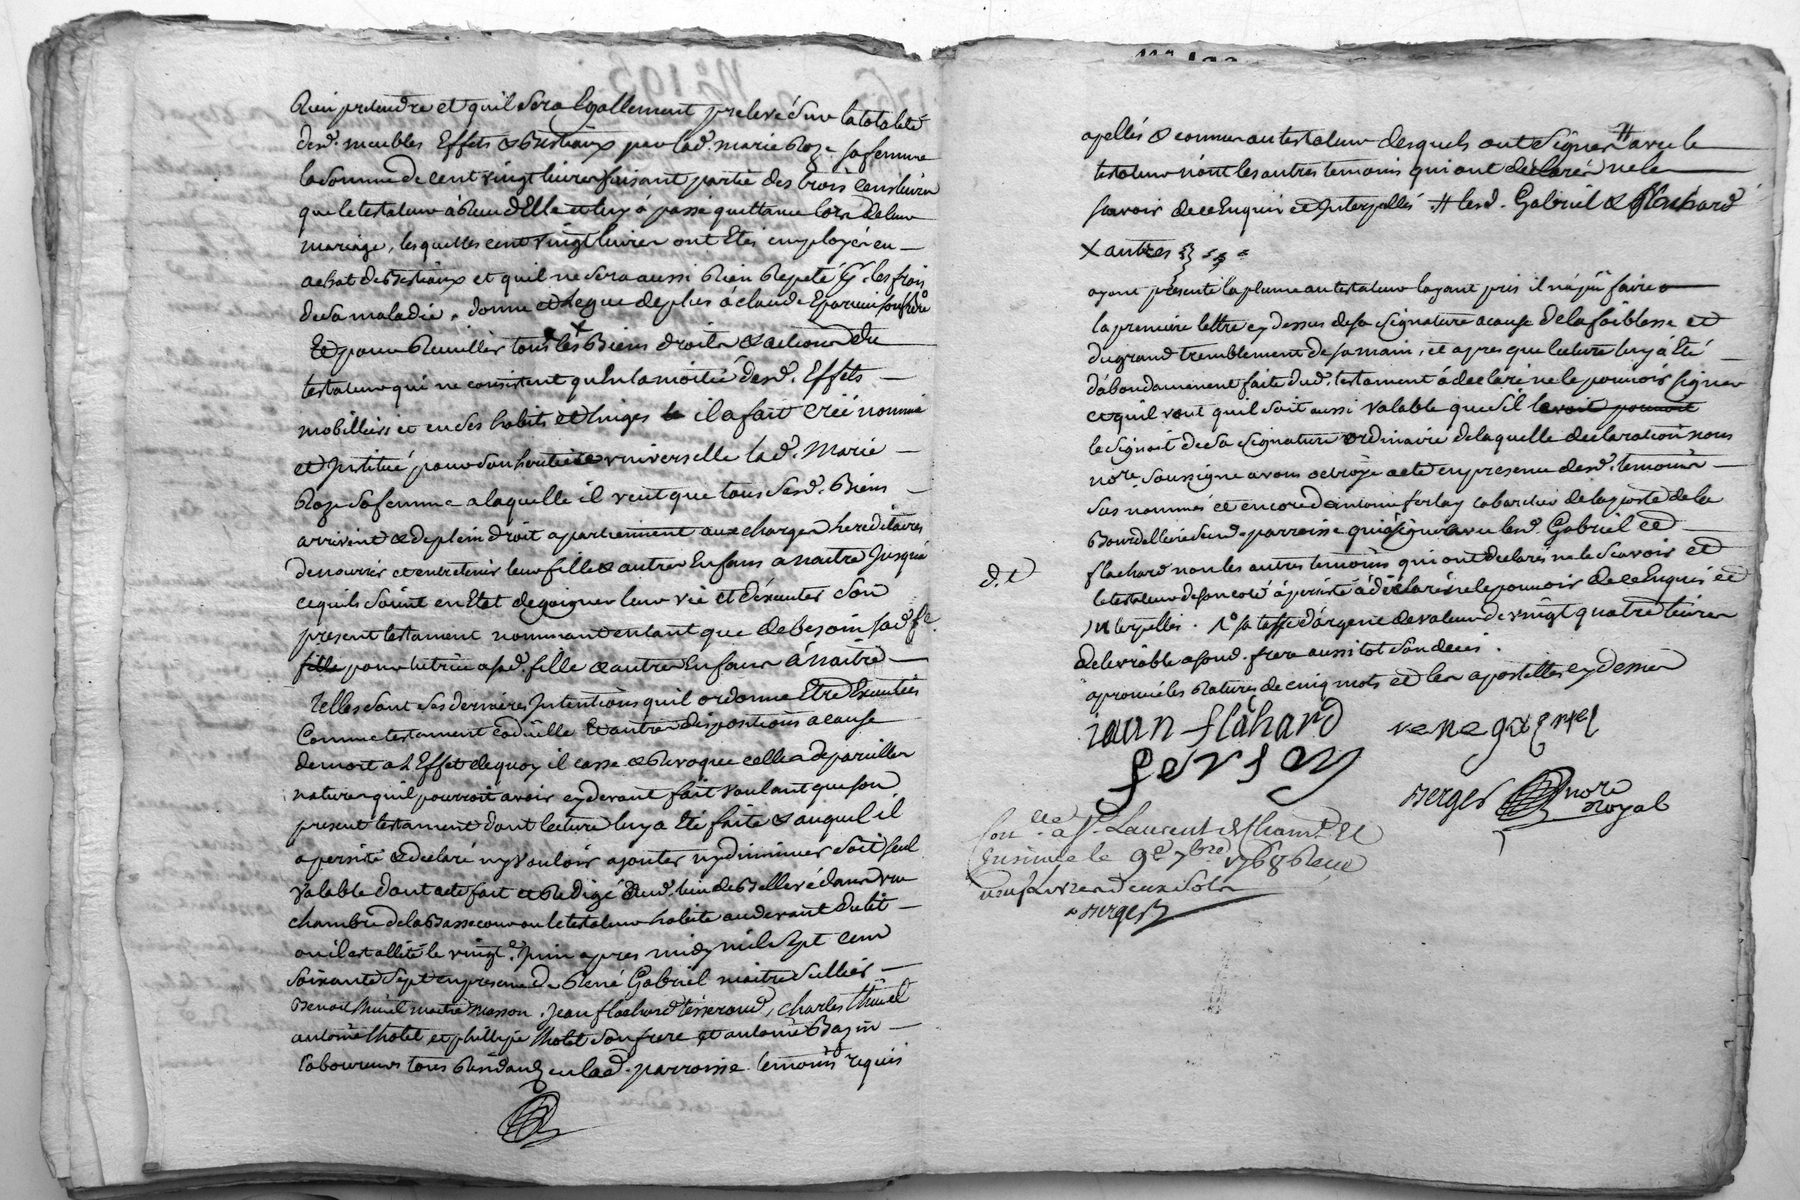 Rien pretendre et quil sera Egallement prelevé sur la totalité
desd. meubles Effets & Bestiaux par lad. marie Roze sa femme
la somme de cent vingt livres faisant partie des trois cens livres
que le testateur à Reçu d'Elle et luy à passé quittance lors de leur
mariage, lesquelles cent vingt livres ont Etés employées en
achat de Bestiaux et quil ne sera aussi Rien Repeté les frais
de sa maladie. donne et Legue de plus á claude Eparvier son frere
Et pour Recuillir tous les X Biens droits & actions du
testateur qui ne consistent qu'En la moitié desd. Effets
mobilliers et en ses habits et linges il a fait créé nommé
et Jnstitué pour son heritiere universelle lad. Marie
Roze sa femme a laquelle il veut que tous sesd. Biens
arrivent & de plein droit apartiennent aux charges hereditaires
de nourrir et entretenir leur fille & autres Enfans a naitre Jusqua
cequils soint en Etat de gaigner leur vie et d'éxecuter son
present testament nommant entant que de besoin sad. fe
fille pour tutrice a sad. fille & autres Enfans á naitre
Telles sont ses dernieres Jntentions quil ordonne Etre Executées
Comme testament codicille Et autres dispositions a cause
de mort a l'Effet de quoy il casse & Revoque celles de pareilles
nature quil pourroit avoir cy devant fait voulant que son
present testament dont lecture luy a Eté faite & auquel il
a persisté & declaré ny vouloir ajouter ny diminuer soit seul
valable dont acte fait et Redigé aud. lieu de Bellevé dans une
chambre de la Bassecour ou le testateur habite au devant du lit
ou il est allité le vingt Juin apres midy mil sept cent
soixante sept en presence de Rene Gabriel maitre sellier
Benoit Thinel maitre masson, Jean flachard tisserand, charles Thinel
antoine Tholet et phillipe Tholet son frere et antoine Bazin
Laboureurs tous Residans en lad. parroisse temoins requis
apellés & connus au testateur desquels ont signer # avec le
testateur n'ont les autres temoins qui ont déclarés ne le
scavoir de ce Enquis et Jnterpellés # lesd. Gabriel & flachard
X autres
ayant presenté la plume au testateur layant pris il n'a pû faire
la premiere lettre cy dessus de sa signature a cause de la foiblesse et
du grand tremblement de sa main, et apres que lecture luy á Eté
d'abondamment faite dud. testament á declaré ne le pouvoir signer
et quil veut quil soit aussi valable que sil le avoit pouvoit
le signoit de sa signature ordinaire de laquelle declaration nous
nore. soussigné avons octroyé acte en presence desd. temoins
sus nommés et encore d'antoine ferlay cabartier de la poste de la
Bourdelliere sur. parroisse qui à signé avec lesd. Gabriel et
flachard non les autres temoins qui ont declarés ne le scavoir et
d. t
le testateur de son coté á persisté à déclarés ne le pouvoir de ce Enquis et
Jnterpellés. 1° sa tasse d'argent de valeur de vingt quatre livres
delivrable a sond. frere aussi tot son deces.
aprouvé les Ratures de cinq mots et les apostilles cy dessus
iean flahard
rene gabriel
ferlay
Berger nore Royal
Con.lle a St. Laurent de Cham.t Et
Jnsinué le 9e. 7bre. 1768 Reçu
neuf Livres deux sols
Berger